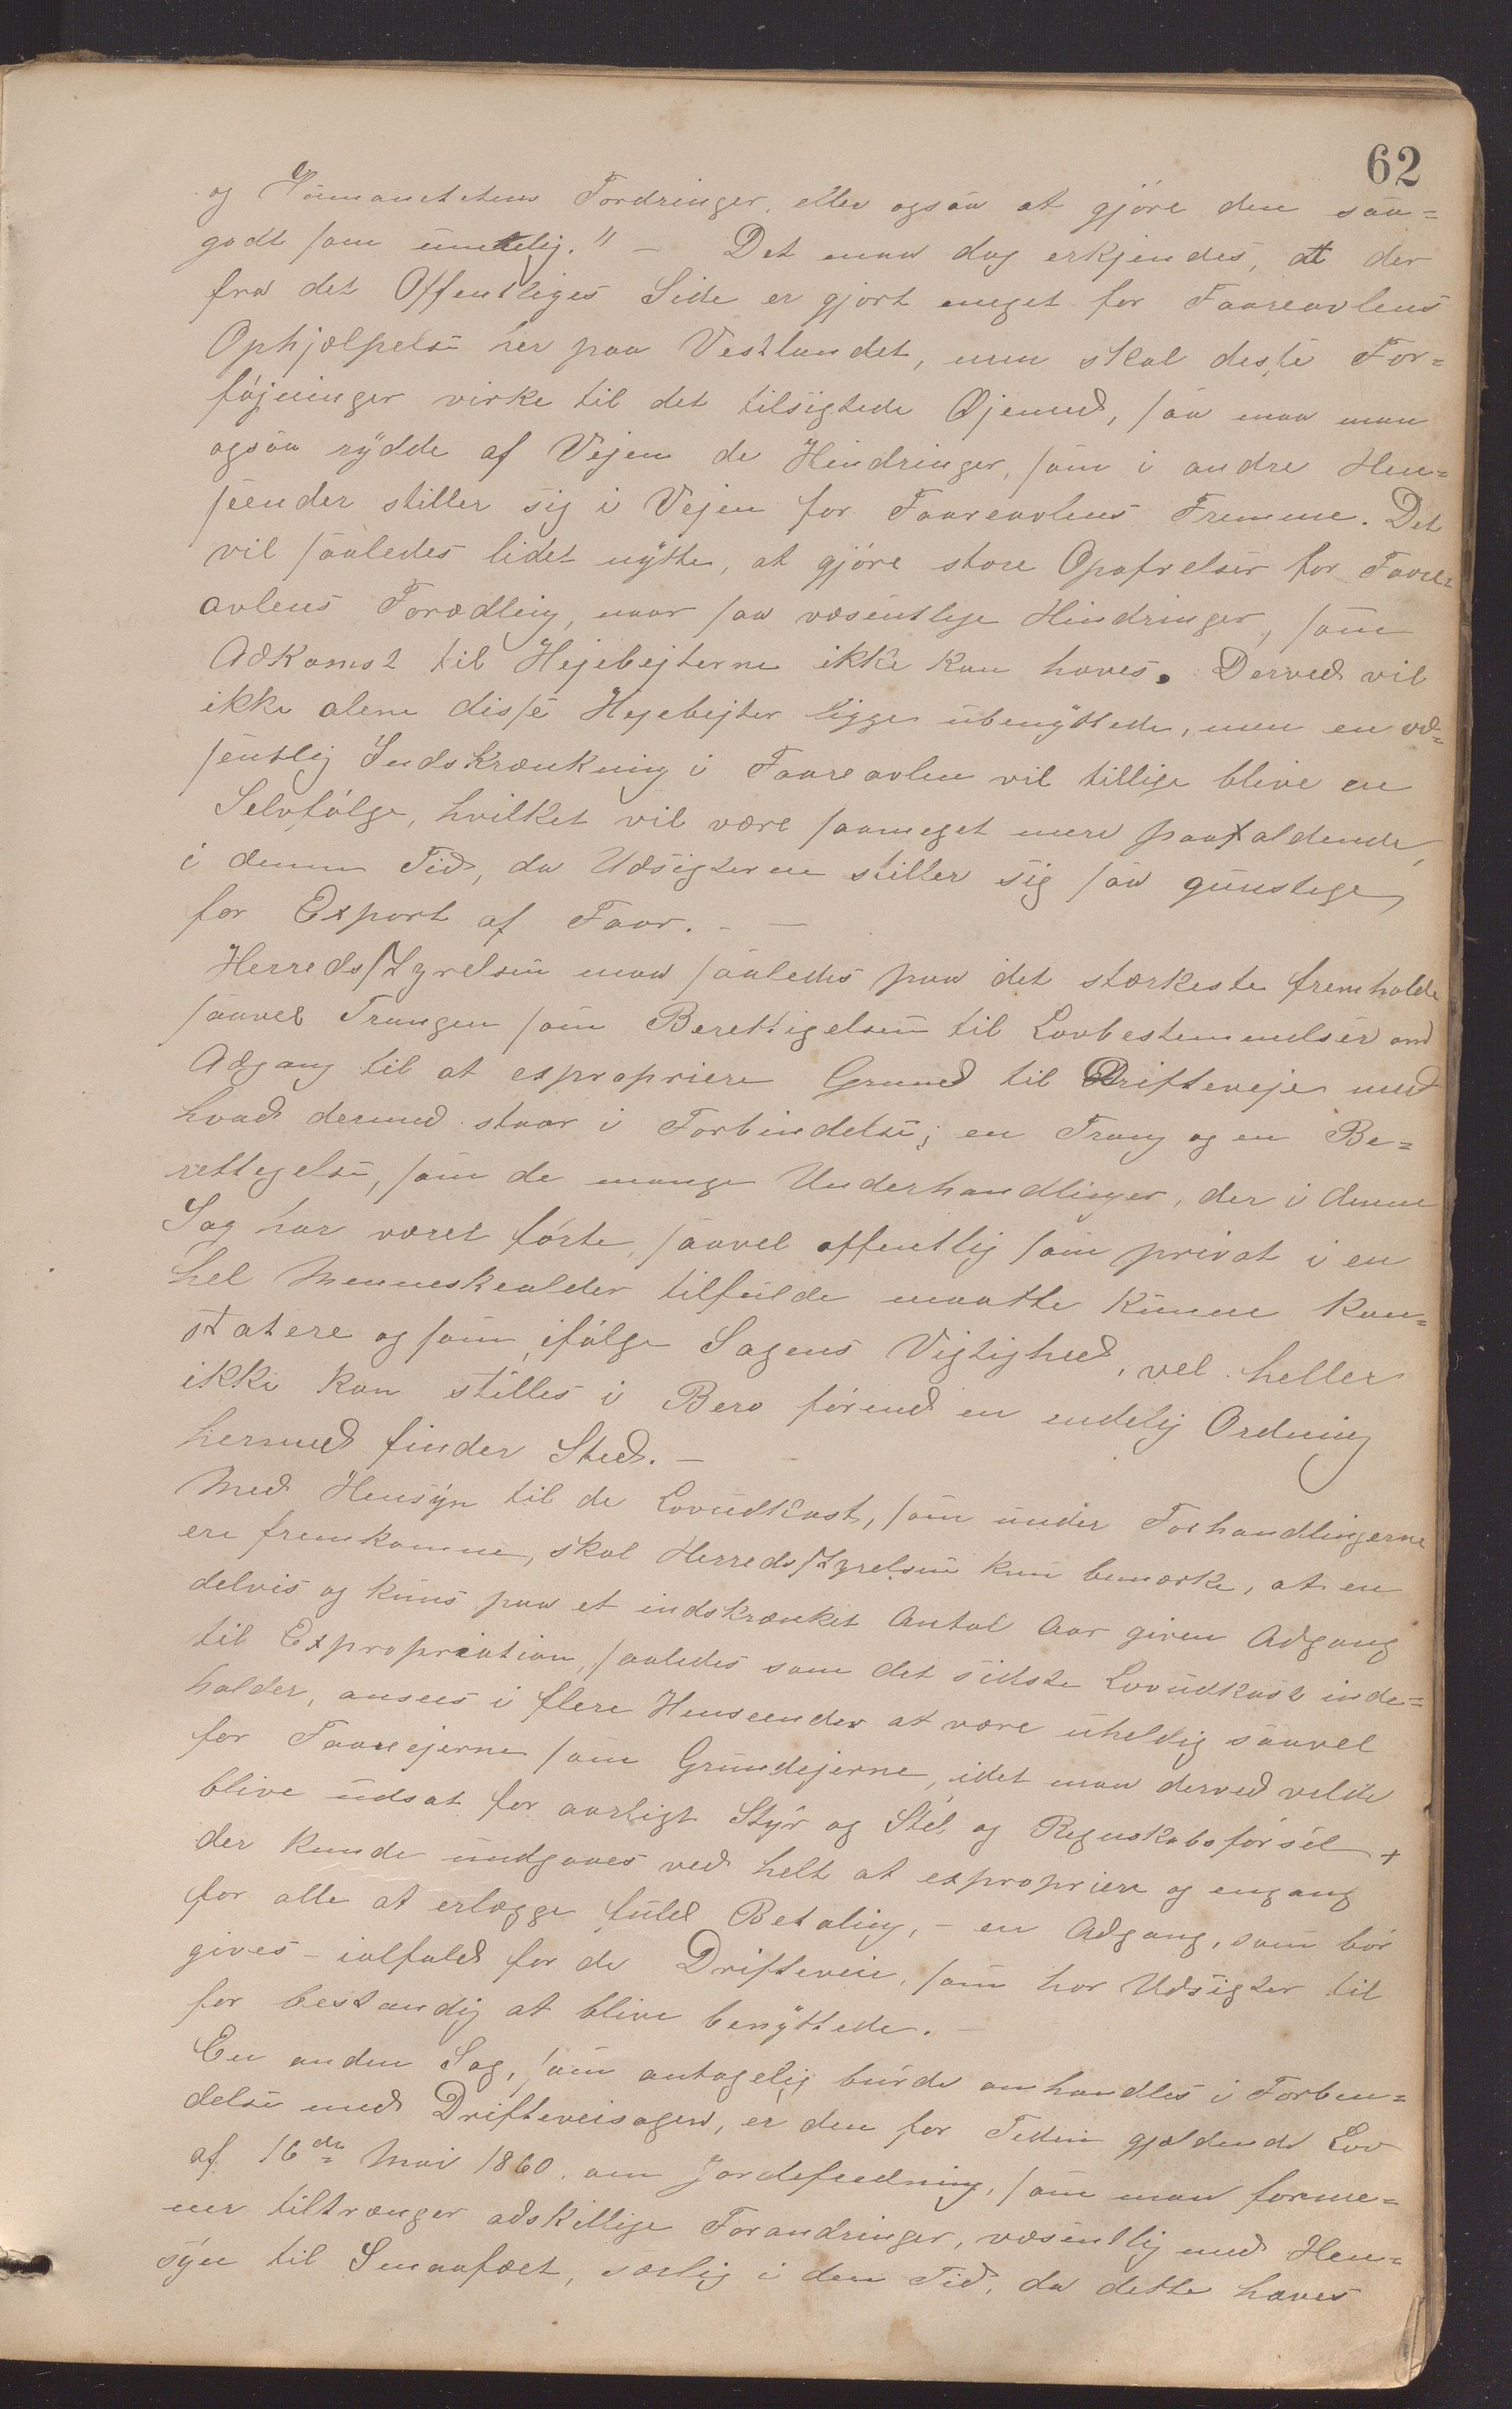 62
og Humanitetens Fordringer, eller ogsaa at gjöre den saa=
godt som umulig." — Det maa dog erkjendes, at der
fra det Offentliges Side er gjort meget for Faareavlens
Ophjælpelse her paa Vestlandet, men skal disse For=
föjninger virke til det tilsigtede Øjemed, saa maa man
ogsaa rydde af Vejen de Hindringer, som i andre Hen=
seender stiller sig i Vejen for Faareavlens Fremme. Det
vil saaledes lidet nytte, at gjöre store Opofrelser for Faare=
avlens Forædling, naar saa væsentlige Hindringer, som
Adkomst til Hejebejterne ikke kan haves. Derved vil
ikke alene disse Hejebejter ligge ubenyttede, men en væ=
sentlig Indskrænkning i Faareavlen vil tillige blive en
Selvfölge, hvilket vil være saameget mere paafaldende,
i denne Tid, da Udsigterne stiller sig saa gunstige
for Export af Faar. — —
Herredsstyrelsen maa saaledes paa det stærkeste fremholde
saavel Trangen som Berettigelsen til Lovbestemmelser om
Adgang til at expropriere Grund til Drifteveje med
hvad dermed staar i Forbindelse; en Trang og en Be=
rettigelse, som de mange Underhandlinger, der i denne
Sag har været förte, saavel offentlig som privat i en
hel Menneskealder tilfulde maatte kunne kon=
statere og som, ifölge Sagens Vigtighed, vel heller
ikke kan stilles i Bero förend en endelig Ordning
hermed finder Sted. —
Med Hensyn til de Lovudkast, som under Forhandlingerne
ere fremkomne, skal Herredsstyrelsen kun bemærke, at en
delvis og kuns paa et indskrænket Antal Aar given Adgang
til Expropriation, saaledes som det sidste Lovudkast inde=
holder, ansees i flere Henseender at være uheldig saavel
for Faareejerne som Grundejerne, idet man derved vilde
blive udsat for aarligt Styr og Stel og Regnskabsförsel +
der kunde undgaaes ved helt at expropriere og engang
for alle at erlægge fuld Betaling, – en Adgang, som bör
gives – ialfald for de Drifteveie, som har Udsigter til
for bestandig at blive benyttede. —
En anden Sag, som antagelig burde omhandles i Forbin=
delse med Drifteveisagen, er den for Tiden gjældende Lov
af 16de Mai 1860. om Jordefredning, som man forme=
ner tiltrænger adskillige Forandringer, væsentlig med Hen=
syn til Smaafæet, særlig i den Tid, da dette haves